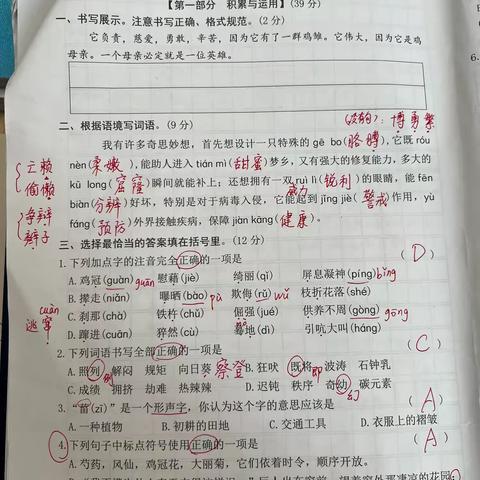 【第一部分 积累与运用】(39 分)
一、书写展示。注意书写正确、格式规范。(2 分)
它负责，慈爱，勇敢，辛苦，因为它有了一群鸡雏。它伟大，因为它是鸡
母亲。一个母亲必定就是一位英雄。
二、根据语境写词语。(9 分)
博 勇 繁
我有许多奇思妙想，首先想设计一只特殊的 gē bo(胳膊)，它既 róu
nèn(柔嫩)，能助人进入 tián mì(甜蜜)梦乡，又有强大的修复能力，多大的
kū long(窟窿)瞬间就能补上；还想拥有一双 ruì lì(锐利)的眼睛，能 fēn
biàn(分辨)好坏，特别是对于病毒入侵，它能起到 jǐng jiè(警戒)作用，yù
fáng(预防)外界接触疾病，保障 jiàn kāng(健康)。
亡赖
偷懒
争辩
辫子
三、选择最恰当的答案填在括号里。(12 分)
1. 下列加点字的注音完全正确的一项是 (D)
A. 鸡冠(guàn) guān 慰藉(jiè) 绮丽(qī) 屏息凝神(píng) bǐng
B. 撵走(niǎn) 曝晒(bào) pù 欺侮(rǔ) wǔ 枝折花落(shé)
C. 刹那(chà) 铁杵(chǔ) 倔强(jué) 供养不周(gòng) gōng
D. 蹿进(cuān) 猝然(cù) 蓦地(dì) 引吭大叫(háng)
cuàn
逃窜
2. 下列词语书写全部正确的一项是 (C)
A. 照列 例 解闷 规矩 向日葵 察 登 B. 狂吠 既将 即 波涛 石钟乳
C. 成绩 拥挤 劫难 热辣辣 D. 迟钝 秩序 奇幼 幻 碳元素
3. “菑(zī)”是一个形声字，你认为这个字的意思应该是 (A)
A. 一种植物 B. 初耕的田地 C. 交通工具 D. 衣服上的褶皱
4. 下列句子中标点符号使用正确的一项是 (A)
A. 芍药，凤仙，鸡冠花，大丽菊，它们依着时令，顺序开放。
6.